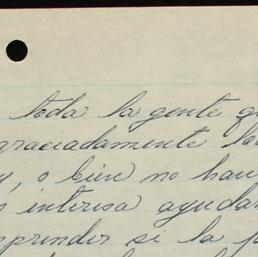 toda la gente q
graciadamente lo
y, o bien no hau
interesa ayudar
mprender si la p